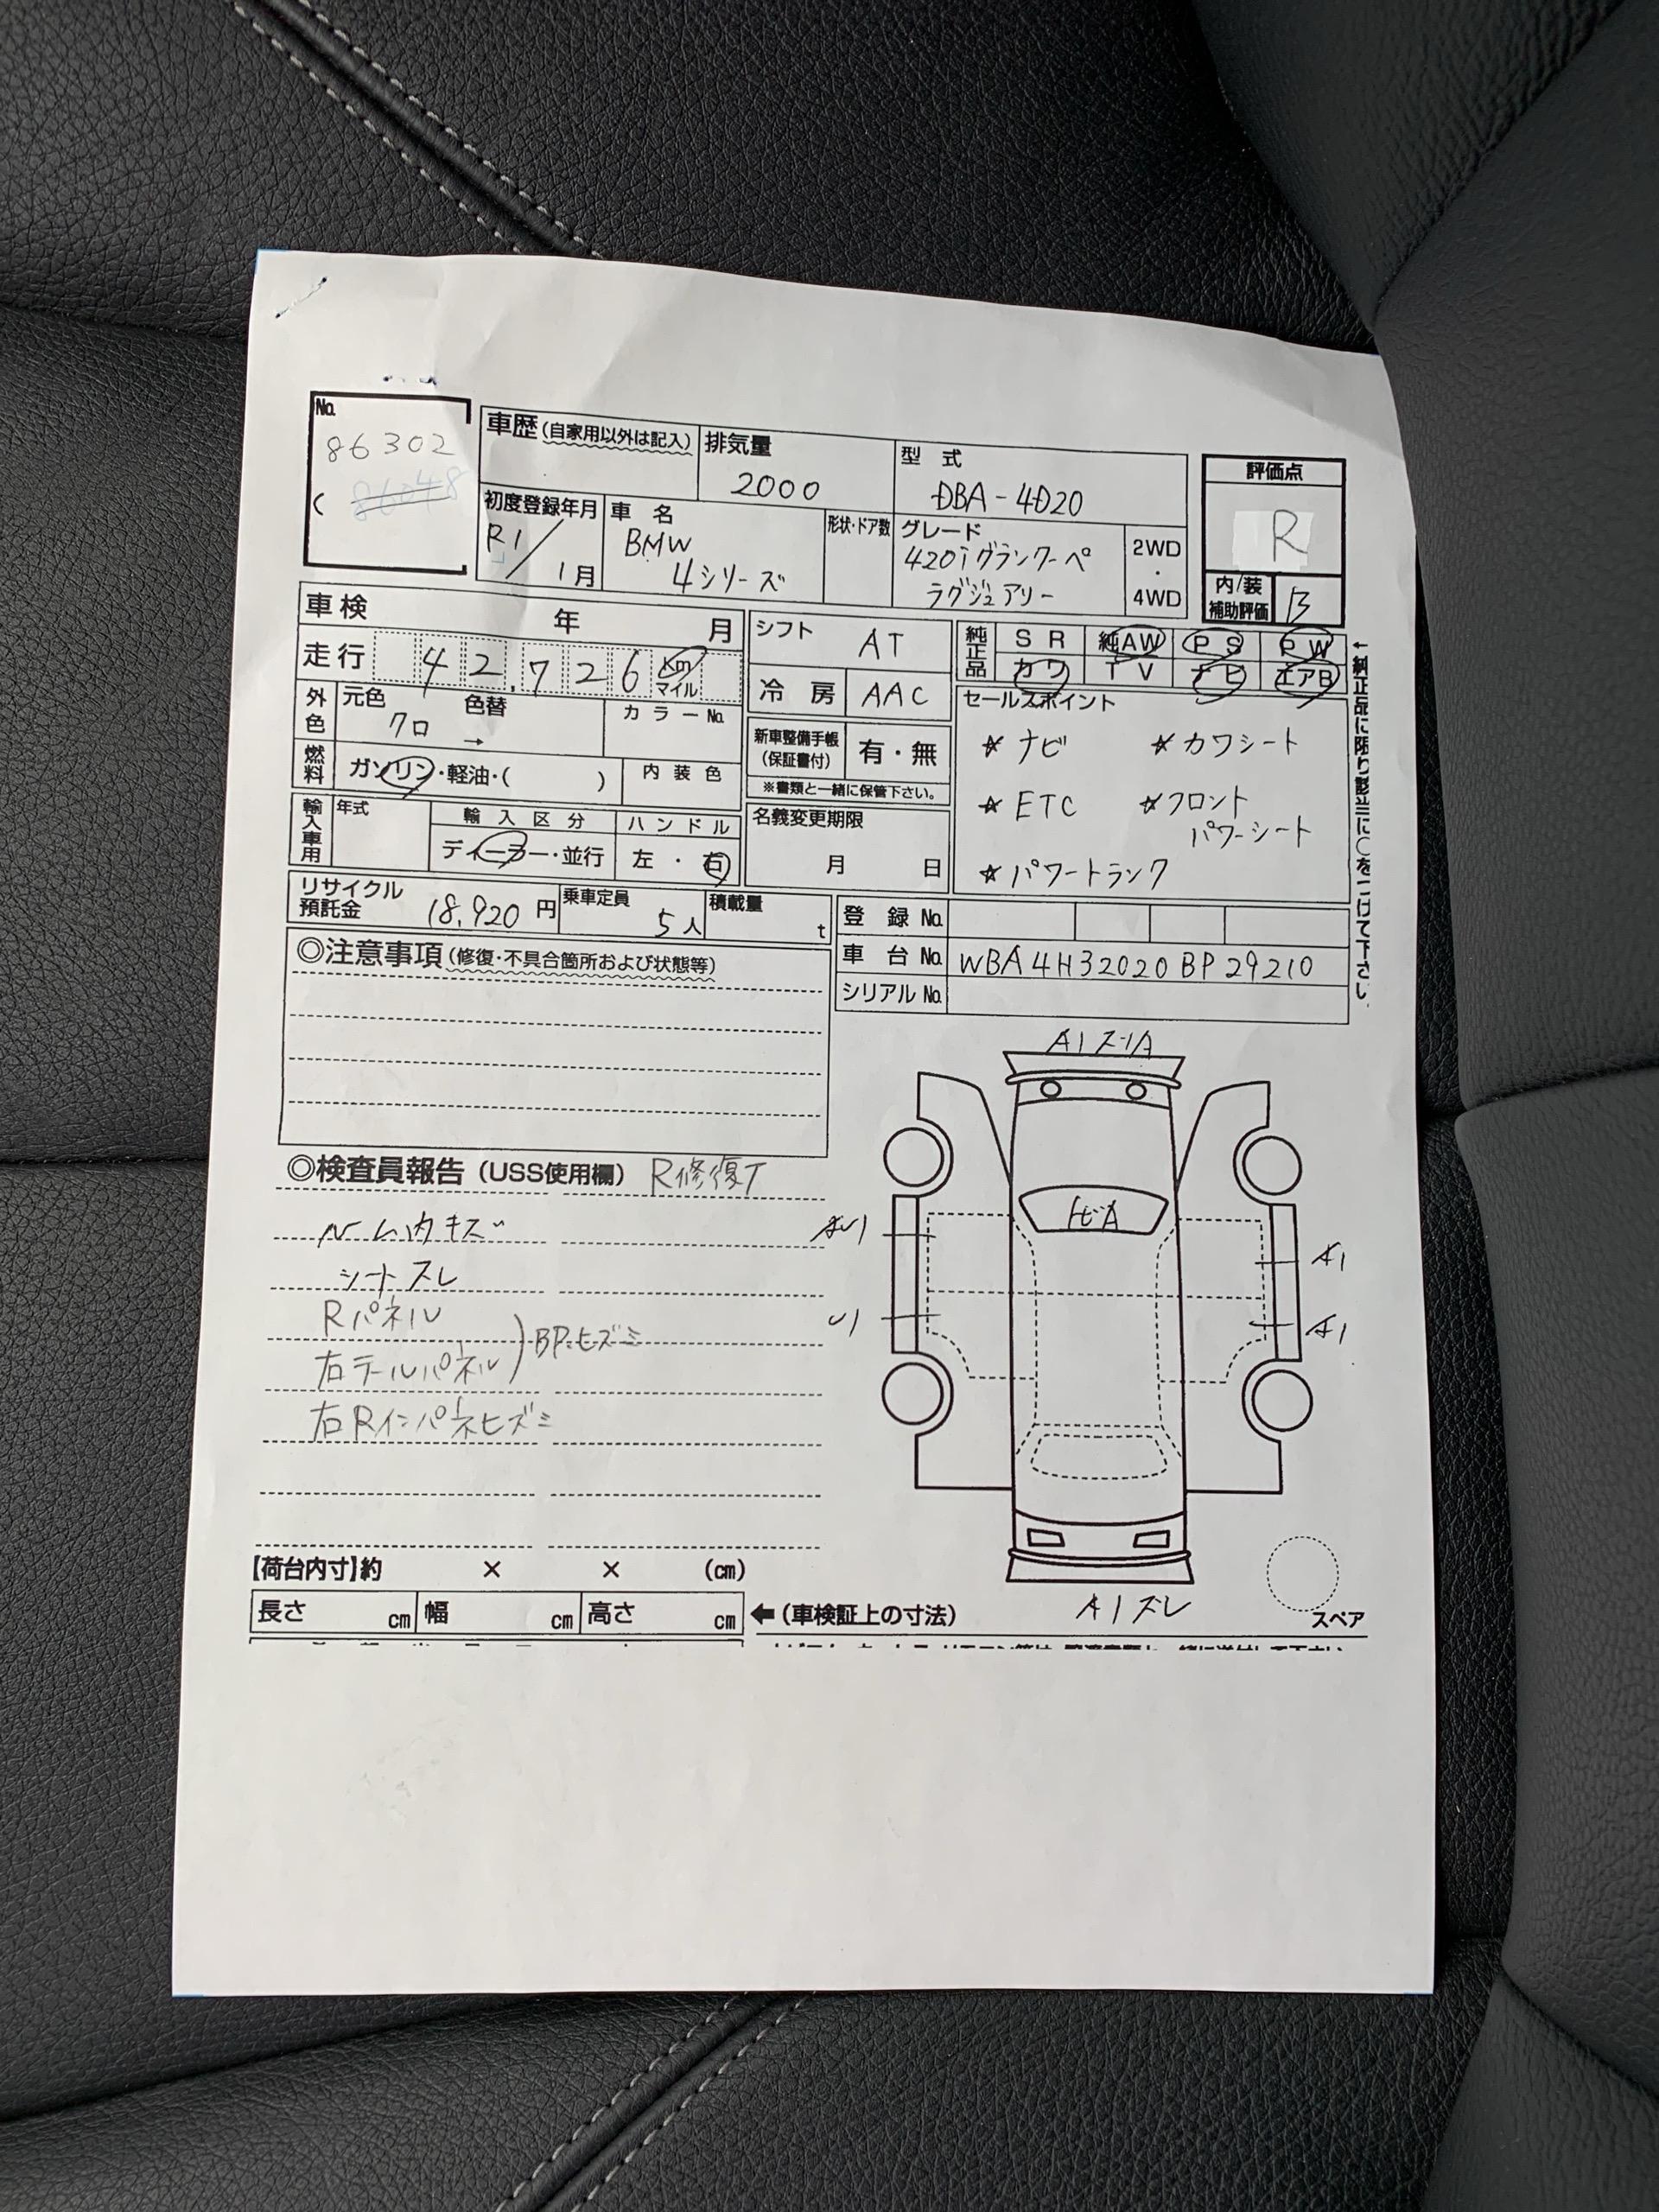 No.
86302
車歴(自家用以外は記入)
排気量
2000
型 式
DBA-4D20
評価点
R
初度登録年月
R1/1月
車 名
BMW
4シリーズ
形状・ドア数
グレード
420iグランクーペ
ラグジュアリー
2WD
・
4WD
内/装
補助評価
B
車検 年 月
シフト
AT
純正品
SR 純AW PS PW
カワ TV ナビ エアB
走行 42,726 Km
マイル
冷 房
AAC
外色
元色 色替
クロ →
カラーNo.
新車整備手帳
(保証書付)
有・無
※書類と一緒に保管下さい。
セールスポイント
☆ナビ ☆カワシート
☆ETC ☆フロント
パワーシート
☆パワートランク
←純正品に限り該当に○をつけて下さい。
燃料
ガソリン・軽油・( )
内装色
輸入車用
年式
輸入区分
ディーラー・並行
ハンドル
左・右
名義変更期限
月 日
リサイクル
預託金 18,920円
乗車定員
5人
積載量
t
登 録 No.
車 台 No. WBA4H32020BP29210
シリアル No.
◎注意事項(修復・不具合箇所および状態等)
◎検査員報告(USS使用欄) R修復T
ルーム内キズ
シートスレ
Rパネル
右テールパネル)BPヒズミ
右Rインパネヒズミ
A1
トビA
A1
U1
A1
A1スレ
スペア
【荷台内寸】約 × × (cm)
長さ cm 幅 cm 高さ cm ←(車検証上の寸法)